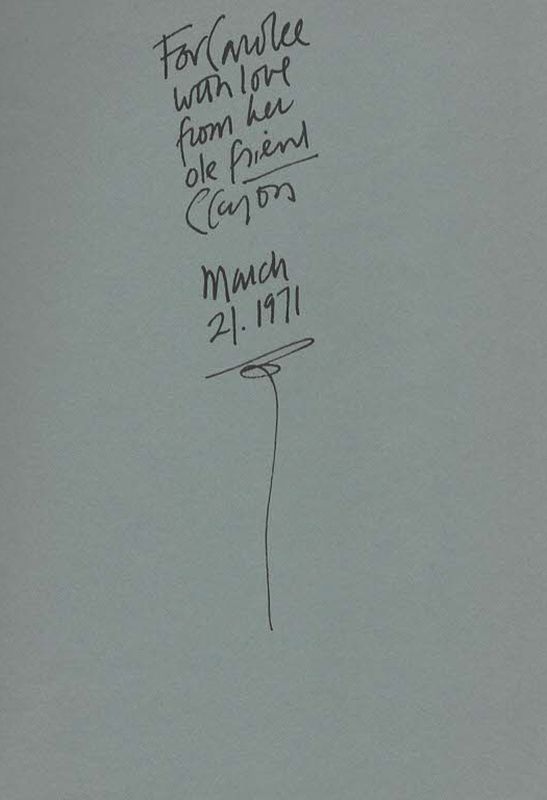 For Carolee
with love
from her
ole friend
Clayton
March
21. 1971